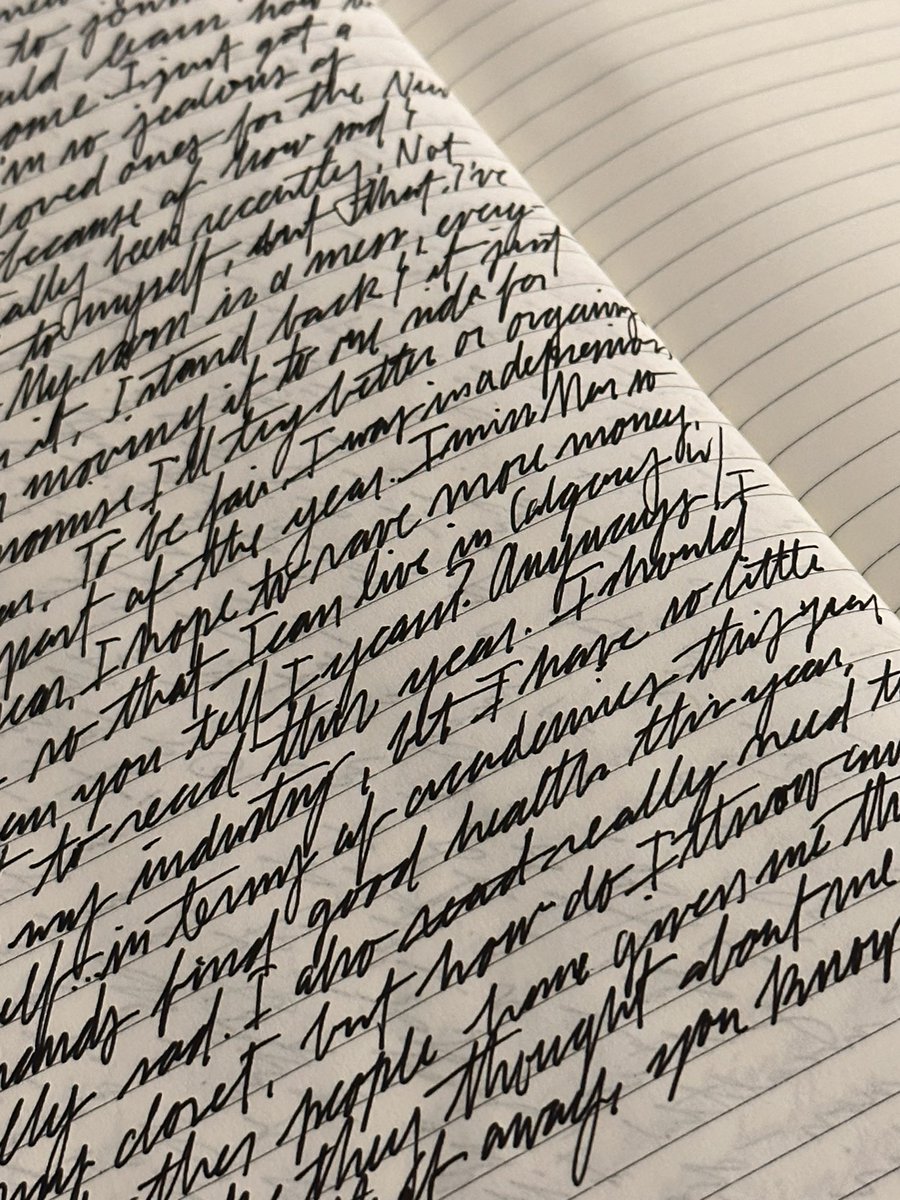 to jour
uld learn how
ome I just got a
I'm so jealous of
loved ones for the New
because of how sad &
ally been recently. Not
to myself, but that I've
My room is a mess, every-
it, I stand back & it just
moving it to one side for
promise I'll try better or
To be fair I was in a depression
part of the year. I miss so
ear, I hope to have more money,
so that I can live in Calgary w/
an you tell I yearn? Anyways, I
to read this year. I should
my industry, but I have so little
elf... in terms of academics this year
hands find good health this year,
lly sad. I also really need t
my closet, but how do I know
other people have given me th
they thought about me
it away, you know